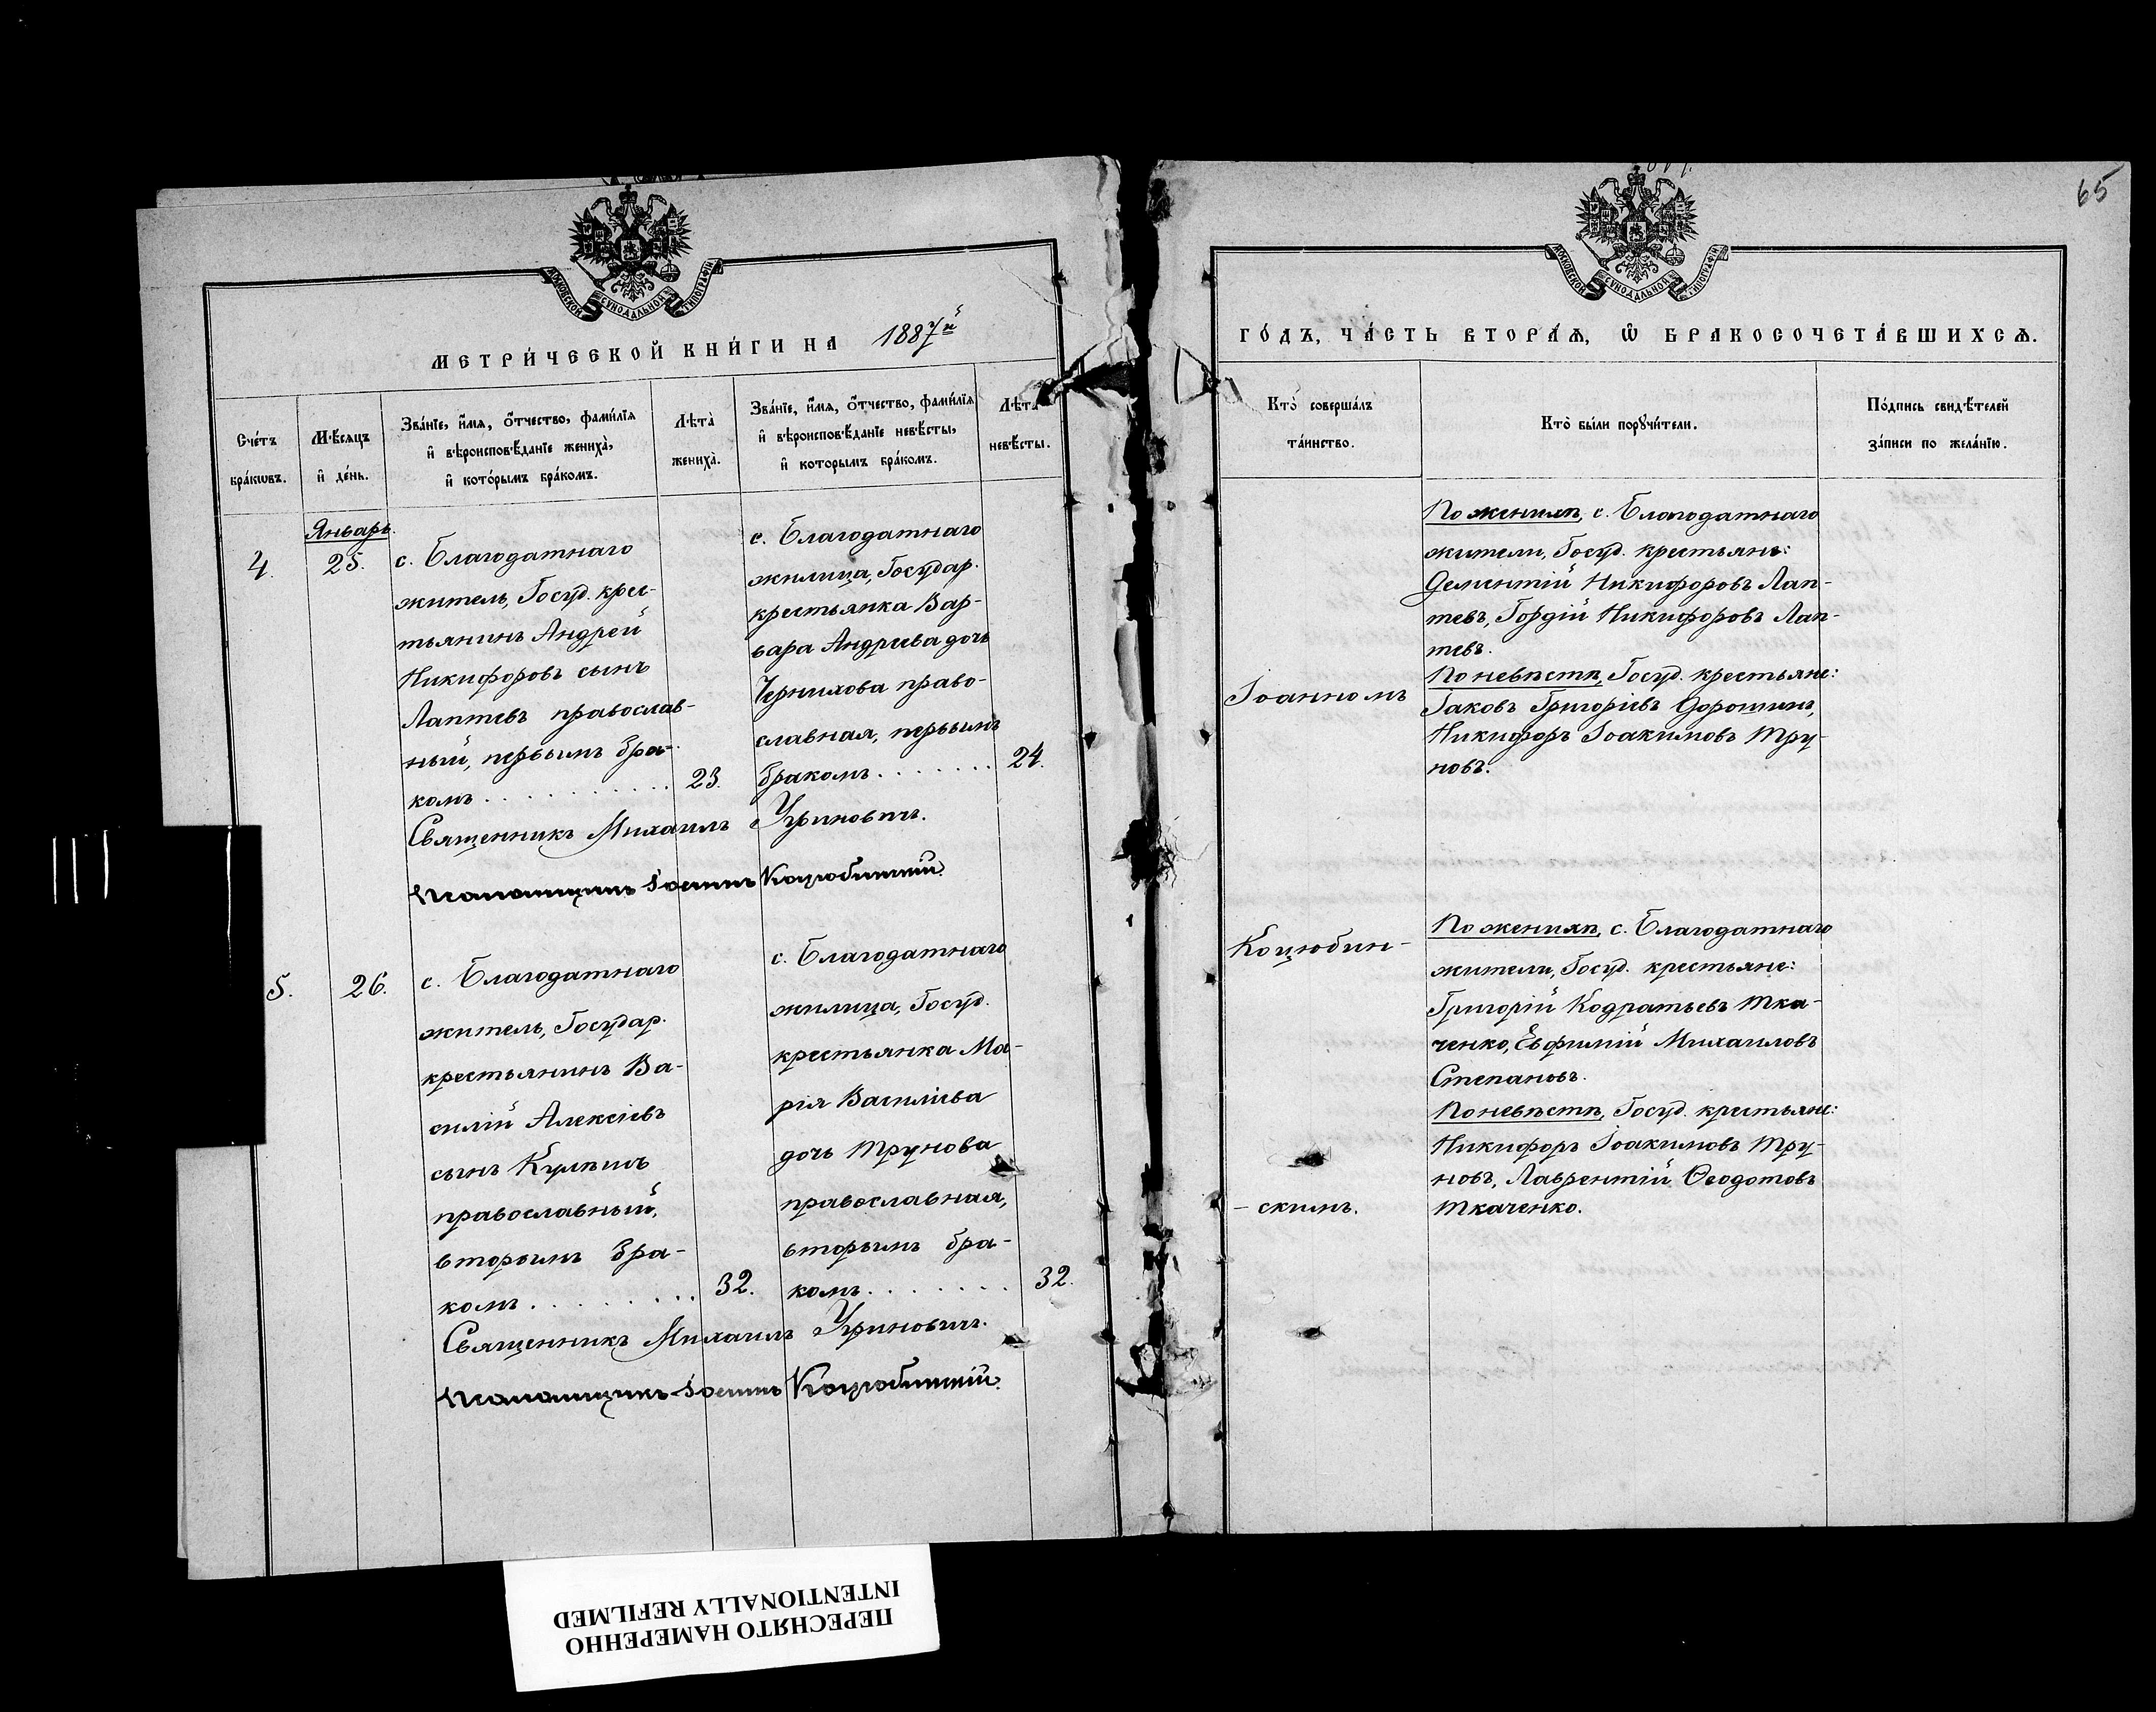 МОСКОВСКОЙ СѴНОДАЛЬНОЙ ТИПОГРАФІИ
МЕТРИ́ЧЕСКОЙ КНИ́ГИ НА 1887й
Сче́тъ бра́кѡвъ.
Мѣ́сяцъ и҆ де́нь.
Зва́нїе, и҆́мѧ, ѻ҆́тчество, фами́лїѧ
и҆ вѣроисповѣ́данїе жениха̀,
и҆ кото́рымъ бра́комъ.
Лѣта̀ жениха̀.
Зва́нїе, и҆́мѧ, ѻ҆́тчество, фами́лїѧ
и҆ вѣроисповѣ́данїе невѣ́сты,
и҆ которымъ бра́комъ.
Лѣта̀ невѣ́сты.
Январь.
4.
25.
с. Благодатнаго
житель, Госуд. крес-
тьянинъ Андрей
Никифоровъ сынъ
Лаптевъ православ-
ный, первымъ бра-
комъ . . . . . . . . . . . 23.
с. Благодатнаго
жилица, Государ.
крестьянка Вар-
вара Андреева дочь
Чернихова право-
славная, первымъ
бракомъ . . . . . . . 24.
Священникъ Михаилъ Угриновичъ.
Псаломщикъ Іоаннъ Коцюбинскій.
5.
26.
с. Благодатнаго
житель, Государ.
крестьянинъ Ва-
силій Алексіевъ
сынъ Кулѣшъ
православный,
вторымъ бра-
комъ . . . . . . . . . 32.
с. Благодатнаго
жилица, Госуд.
крестьянка Ма-
рія Василіева
дочь Трунова
православная,
вторымъ бра-
комъ . . . . . . . 32.
Священникъ Михаилъ Угриновичъ.
Псаломщикъ Іоаннъ Коцюбинскій.
ПЕРЕСНЯТО НАМЕРЕННО
INTENTIONALLY REFILMED
65
МОСКОВСКОЙ СѴНОДАЛЬНОЙ ТИПОГРАФІИ
ГО́ДЪ, ЧА́СТЬ ВТОРА́Ѧ, Ѡ҆ БРАКОСОЧЕТА́ВШИХСѦ.
Кто̀ соверша́лъ
та́инство.
Кто̀ бы́ли порꙋчи́тели.
По́дпись свидѣ́телей
за́писи по жела́нїю.
Іоанномъ
Коцюбин-
- скимъ.
По женихѣ, с. Благодатнаго
жители, Госуд. крестьянъ:
Дементій Никифоровъ Лап-
тевъ, Гордій Никифоровъ Лап-
тевъ.
По невѣстѣ, Госуд. крестьяне:
Іаковъ Григоріевъ Дорошинъ,
Никифоръ Іоакимовъ Тру-
новъ.
По женихѣ, с. Благодатнаго
жители, Госуд. крестьяне:
Григорій Кодратьевъ Тка-
ченко, Евфимій Михаиловъ
Степановъ.
По невѣстѣ, Госуд. крестьяне:
Никифоръ Іоакимовъ Тру-
новъ, Лаврентій Ѳеодотовъ
Ткаченко.